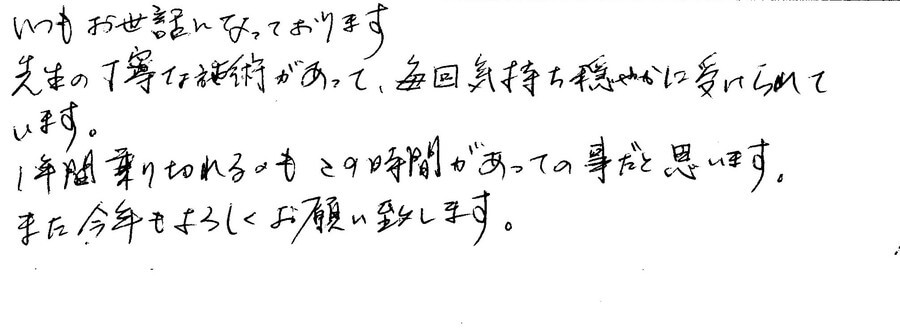 いつもお世話になっております
先生の丁寧な施術があって、毎回気持ち穏やかに受けられて
います。
1年間乗り切れるのもこの時間があっての事だと思います。
また今年もよろしくお願い致します。